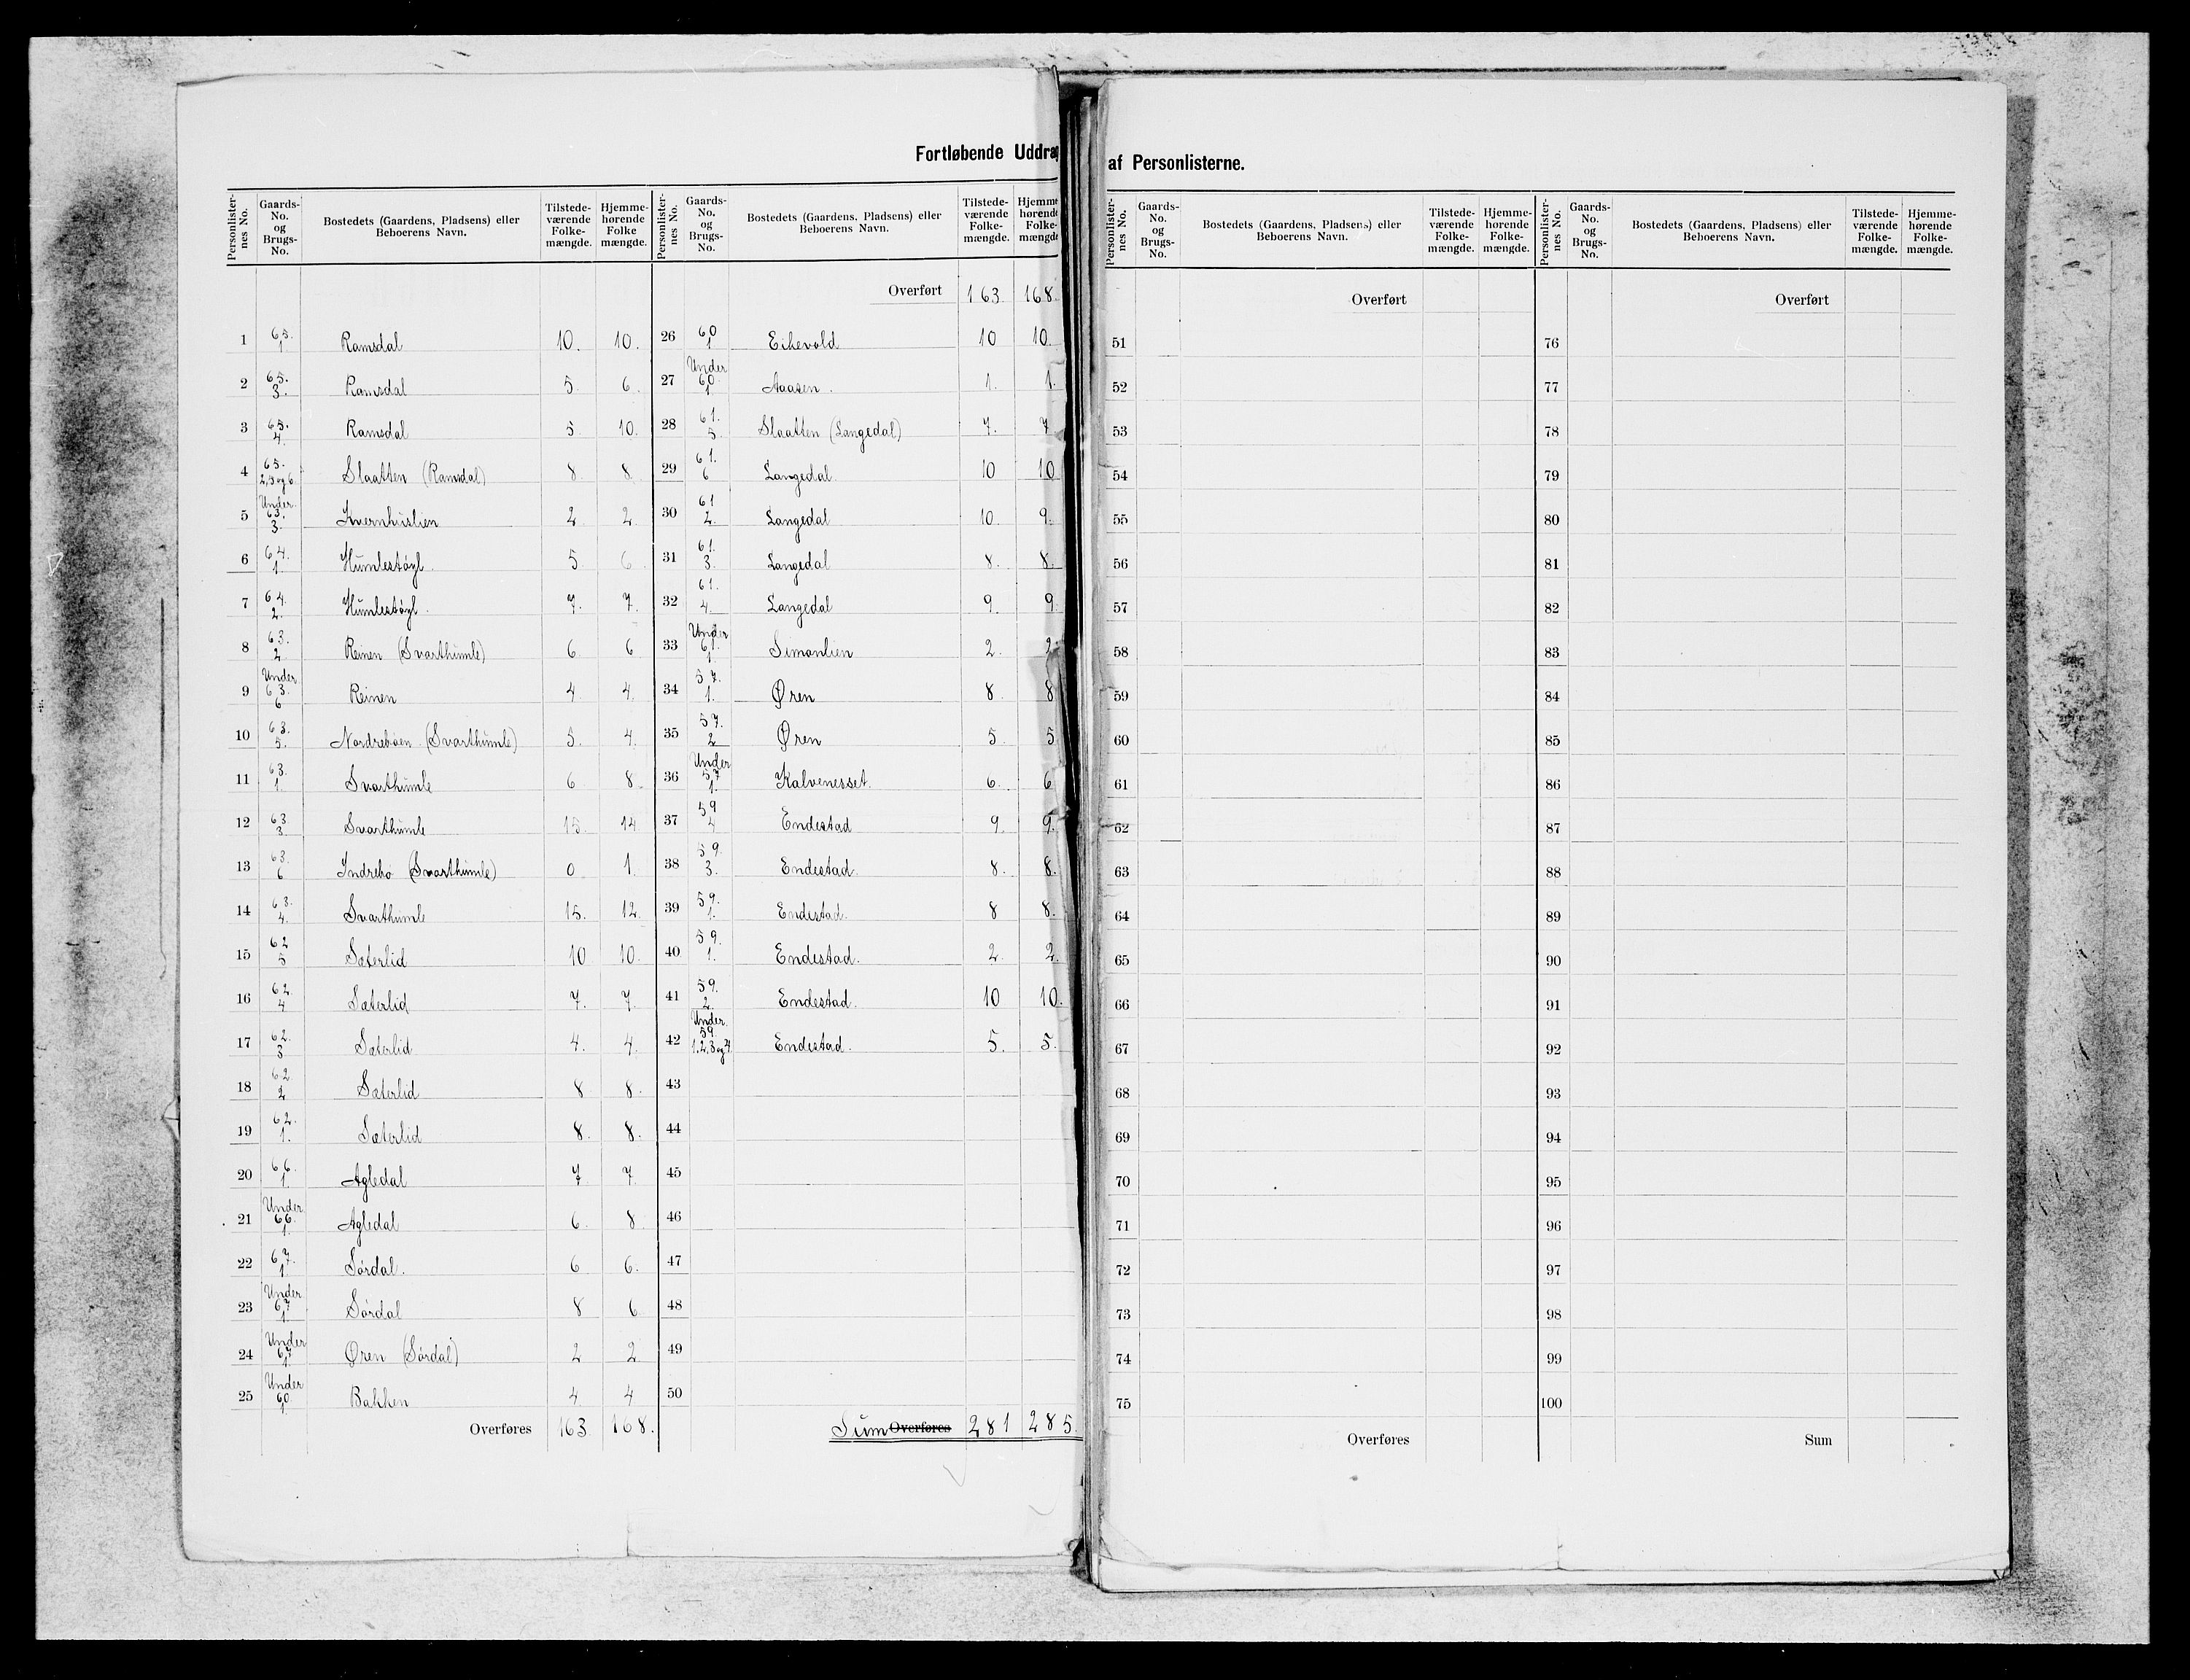 Fortløbende Uddra
af Personlisterne.
Personlister-nes No. Gaards-No. og Brugs-No. Bostedets (Gaardens, Pladsens) eller Beboerens Navn. Tilstede-værende Folke-mængde. Hjemme-hørende Folke mængde.
1 65. 1 Ramsdal 10. 10.
2 65. 3. Ramsdal 5. 6.
3 65. 4. Ramsdal 5 10.
4 65. 2,3 og 6. Slaatten (Ramsdal) 8. 8.
5 Under 63. 3. Kvernhuslien 2 2
6 64. 1. Humlestøyl. 5 6
7 64. 2. Humlestøyl. 7. 7.
8 63. 2 Reinen (Svarthumle) 6. 6
9 Under 63. 6 Reinen 4 4.
10 63. 5. Nordrebøen (Svarthumle) 5. 4.
11 63. 1. Svarthumle 6 8.
12 63 3 Svarthumle 15. 14
13 63. 6 Indrebø (Svarthumle) 0 1.
14 63. 4. Svarthumle 15. 12.
15 62 5 Sæterlid 10 10.
16 62. 4 Sæterlid 7. 7.
17 62. 3 Sæterlid 4. 4.
18 62 2 Sæterlid 8 8.
19 62. 1. Sæterlid 8. 8.
20 66. 1 Agledal 7 7
21 Under 66. 1. Agledal 6. 8.
22 67. 1. Sørdal. 6 6.
23 Under 67 1. Sørdal 8 6
24 Under 67 1 Øren (Sørdal) 2 2
25 Under 60. 1 Bakken 4 4
Overføres 163 168.
Personlister-nes No. Gaards-No. og Brugs-No. Bostedets (Gaardens, Pladsens) eller Beboerens Navn. Tilstede-værende Folke-mængde. Hjemme hørende Folke-mængde
Overført 163. 168.
26 60 1 Eikevold 10 10.
27 Under 60. 1. Aasen. 1. 1.
28 61. 5. Slaatten (Langedal) 7. 7
29 61. 6 Langedal 10 10
30 61 2. Langedal 10. 9.
31 61. 3. Langedal 8. 8.
32 61. 4. Langedal 9. 9.
33 Under 61. 1. Simonlien 2. 2
34 57. 1. Øren 8. 8
35 57. 2 Øren 5. 5
36 Under 57 1. Kalvenesset. 6. 6
37 59 4 Endestad 9. 9.
38 59. 3. Endestad. 8. 8.
39 59. 1. Endestad. 8 8.
40 59. 1. Endestad. 2. 2.
41 59. 2. Endestad. 10 10.
42 Under 59. 1.2.3 og 4. Endestad. 5. 5.
43
44
45
46
47
48
49
50
Sum Overføres 281 285.
Personlister-nes No. Gaards-No. og Brugs-No. Bostedets (Gaardens, Pladsens) eller Beboerens Navn. Tilstede-værende Folke-mængde. Hjemme-hørende Folke-mængde.
Overført
51
52
53
54
55
56
57
58
59
60
61
62
63
64
65
66
67
68
69
70
71
72
73
74
75
Overføres
Personlister-nes No. Gaards-No. og Brugs-No. Bostedets (Gaardens, Pladsens) eller Beboerens Navn. Tilstede-værende Folke-mængde. Hjemme-hørende Folke-mængde.
Overført
76
77
78
79
80
81
82
83
84
85
86
87
88
89
90
91
92
93
94
95
96
97
98
99
100
Sum